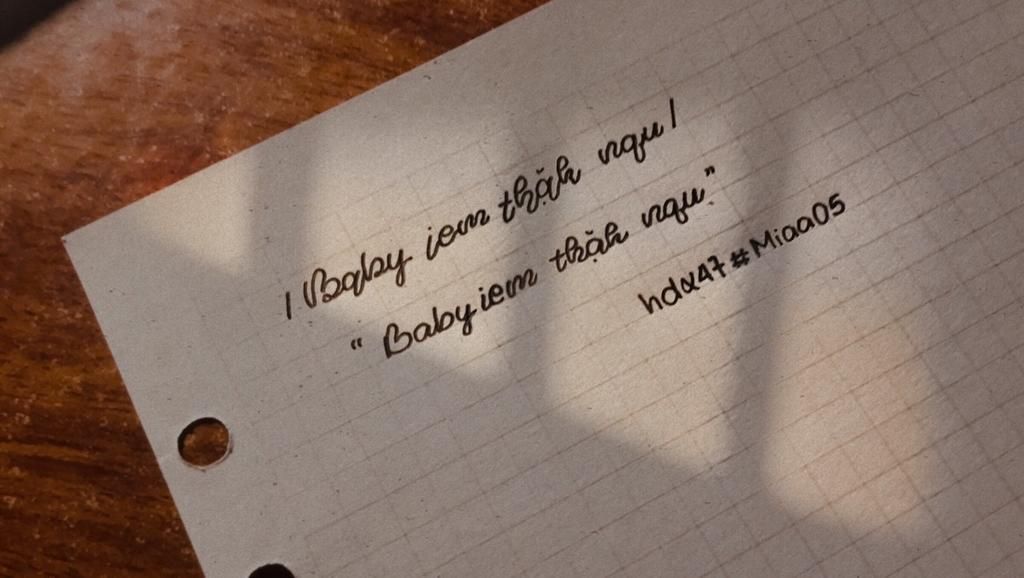 / Baby iem thặk nqu /
“ Baby iem thặk nqu ”
hdx47#Miaa05